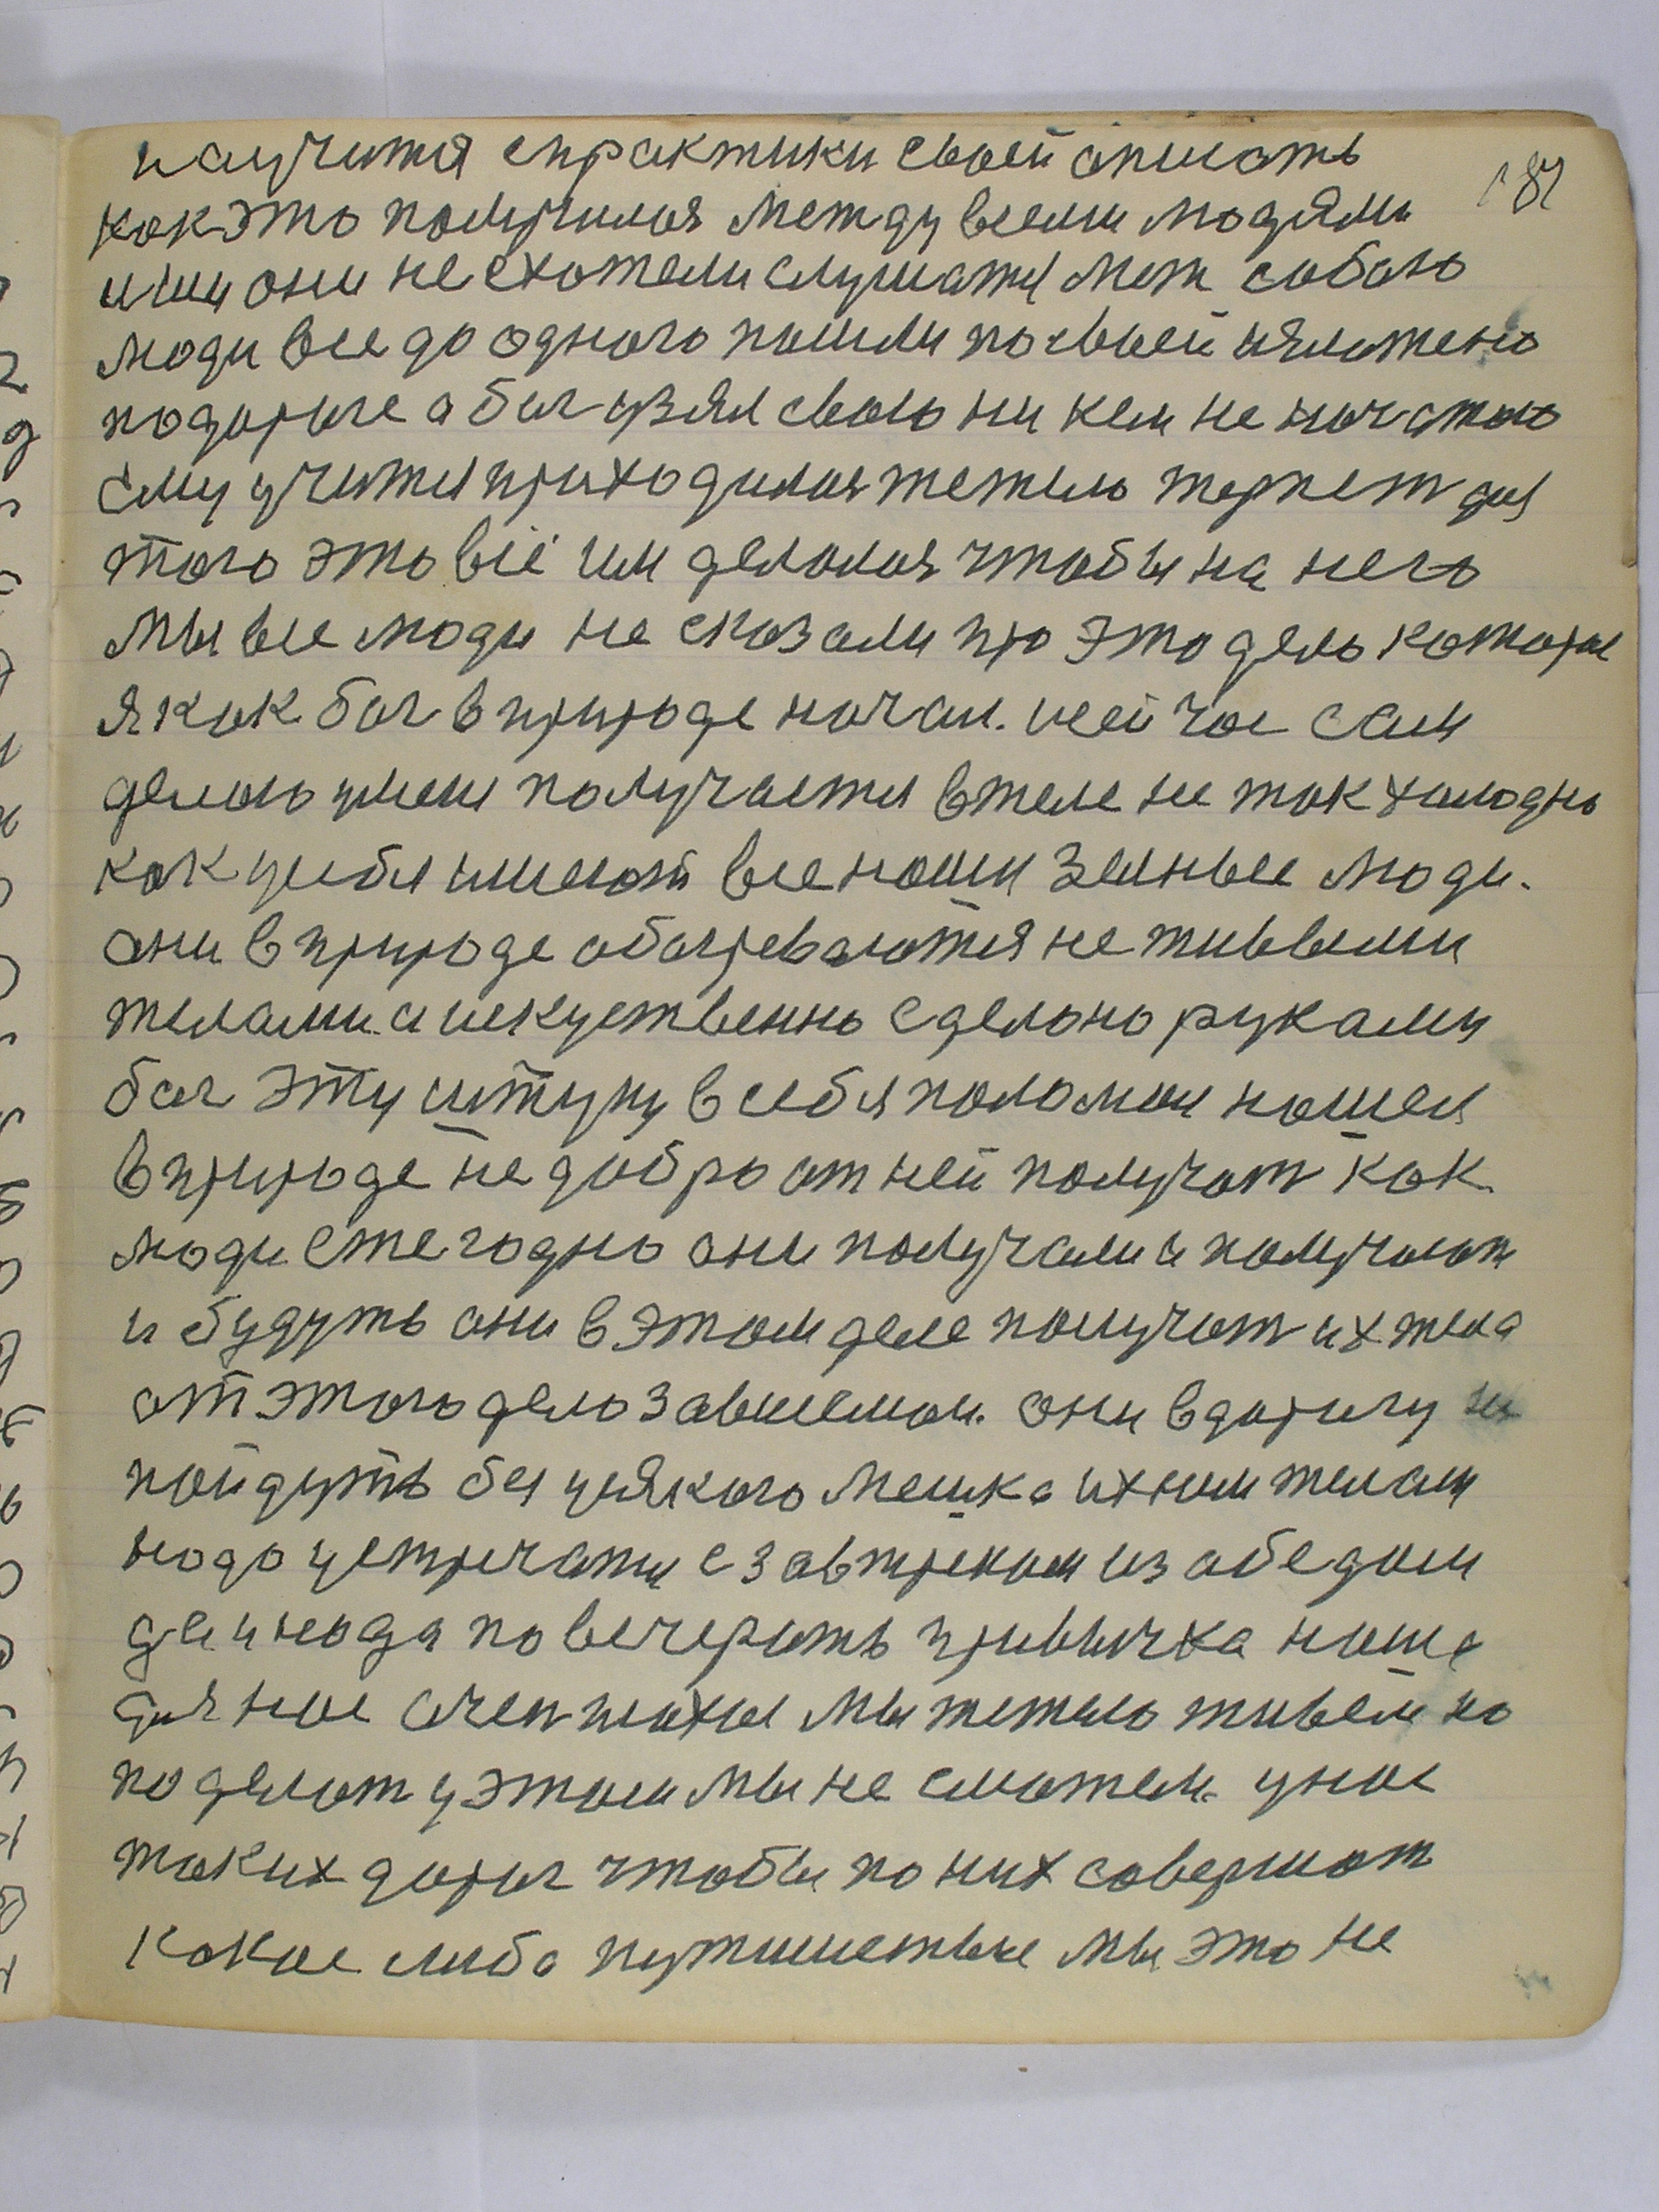 187
научится спрактики своей описать
как это получилося между всеми людями
ими они не схотели слушатся меж собою
люди все до одного пошли по своей
по дороге а бог узял свою ни кем не начатою
ему учится приходилося тежело терпет для
того это все им делалося чтобы на него
мы все люди не сказали про это дело которые
я как бог в природе начал. исейчас сам
делаю уменя получается в теле не так холодно
как усебя имеют все наши земные люди.
они в природе обогреваются не живыми
телами. а искуственно сделано руками
бог эту штуку в себя поломал нашел
в природе не добро от ней получат как
люди ежегодно они получали и получают
и будуть они в этом деле получат их тела
от этого дело зависемои. они в дорогу не
пойдуть без усякого мешка ихним телам
надо устречатся с завтреком из обедом
да и надо повечерить привычка наша
для нас очен плохая мы тежело живем но
поделат у этом мы не сможем. унас
таких дорог чтобы по них совершат
какое либо путишетвие мы это не